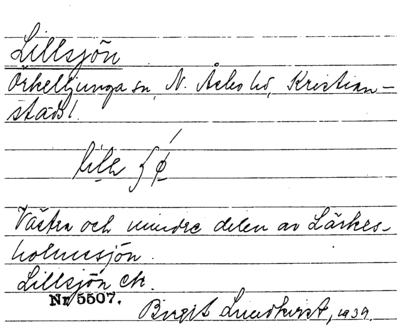 Lillsjön
Örkelljunga sn, N. Åsbo hd, Kristian-
stads l.
Västra och mindre delen av Lärkes-
holmssjön.
Lillsjön ek.
Nr 5507.
Birgit Lundkvist, 1939.